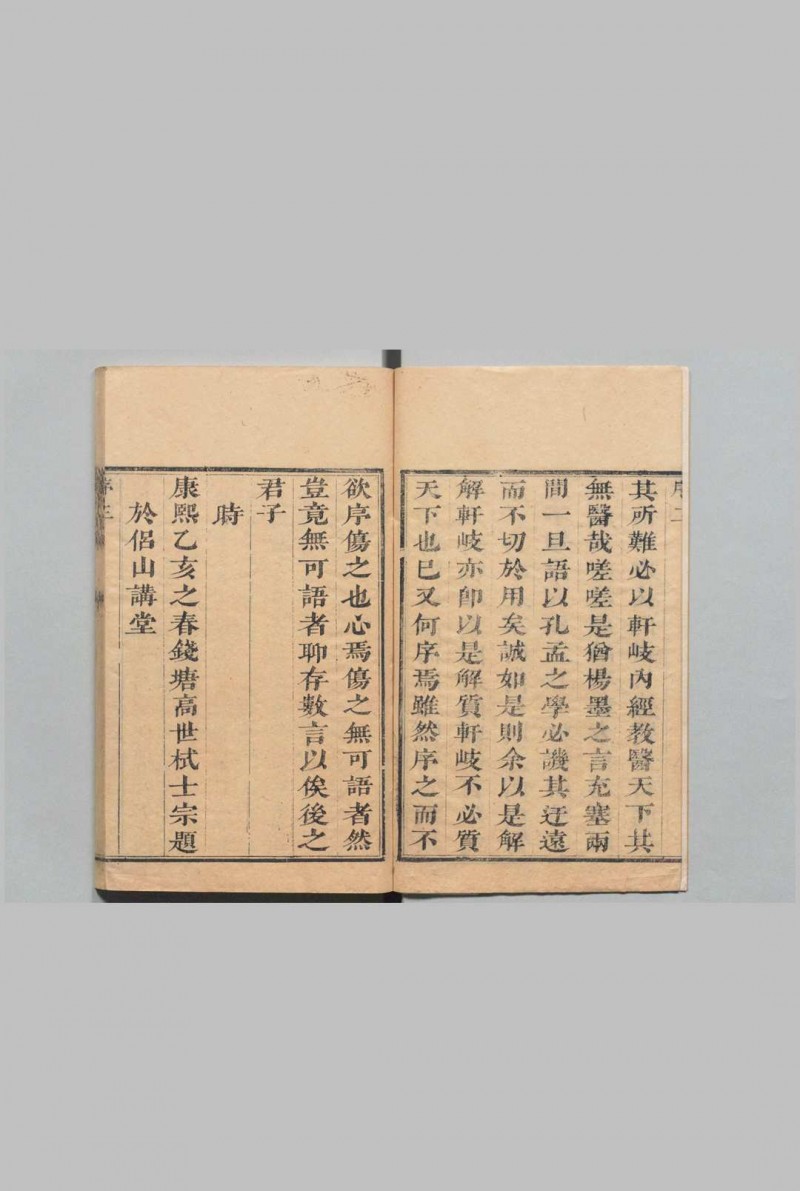 序二
其所難必以軒岐內經教醫天下其
無醫哉嗟嗟是猶楊墨之言充塞兩
間一旦語以孔孟之學必譏其迂遠
而不切於用矣誠如是則余以是解
解軒岐亦卽以是解質軒岐不必質
天下也已又何序焉雖然序之而不
欲序傷之也心焉傷之無可語者然
豈竟無可語者聊存數言以俟後之
君子
時
康熙乙亥之春錢塘高世栻士宗題
於侶山講堂
序三